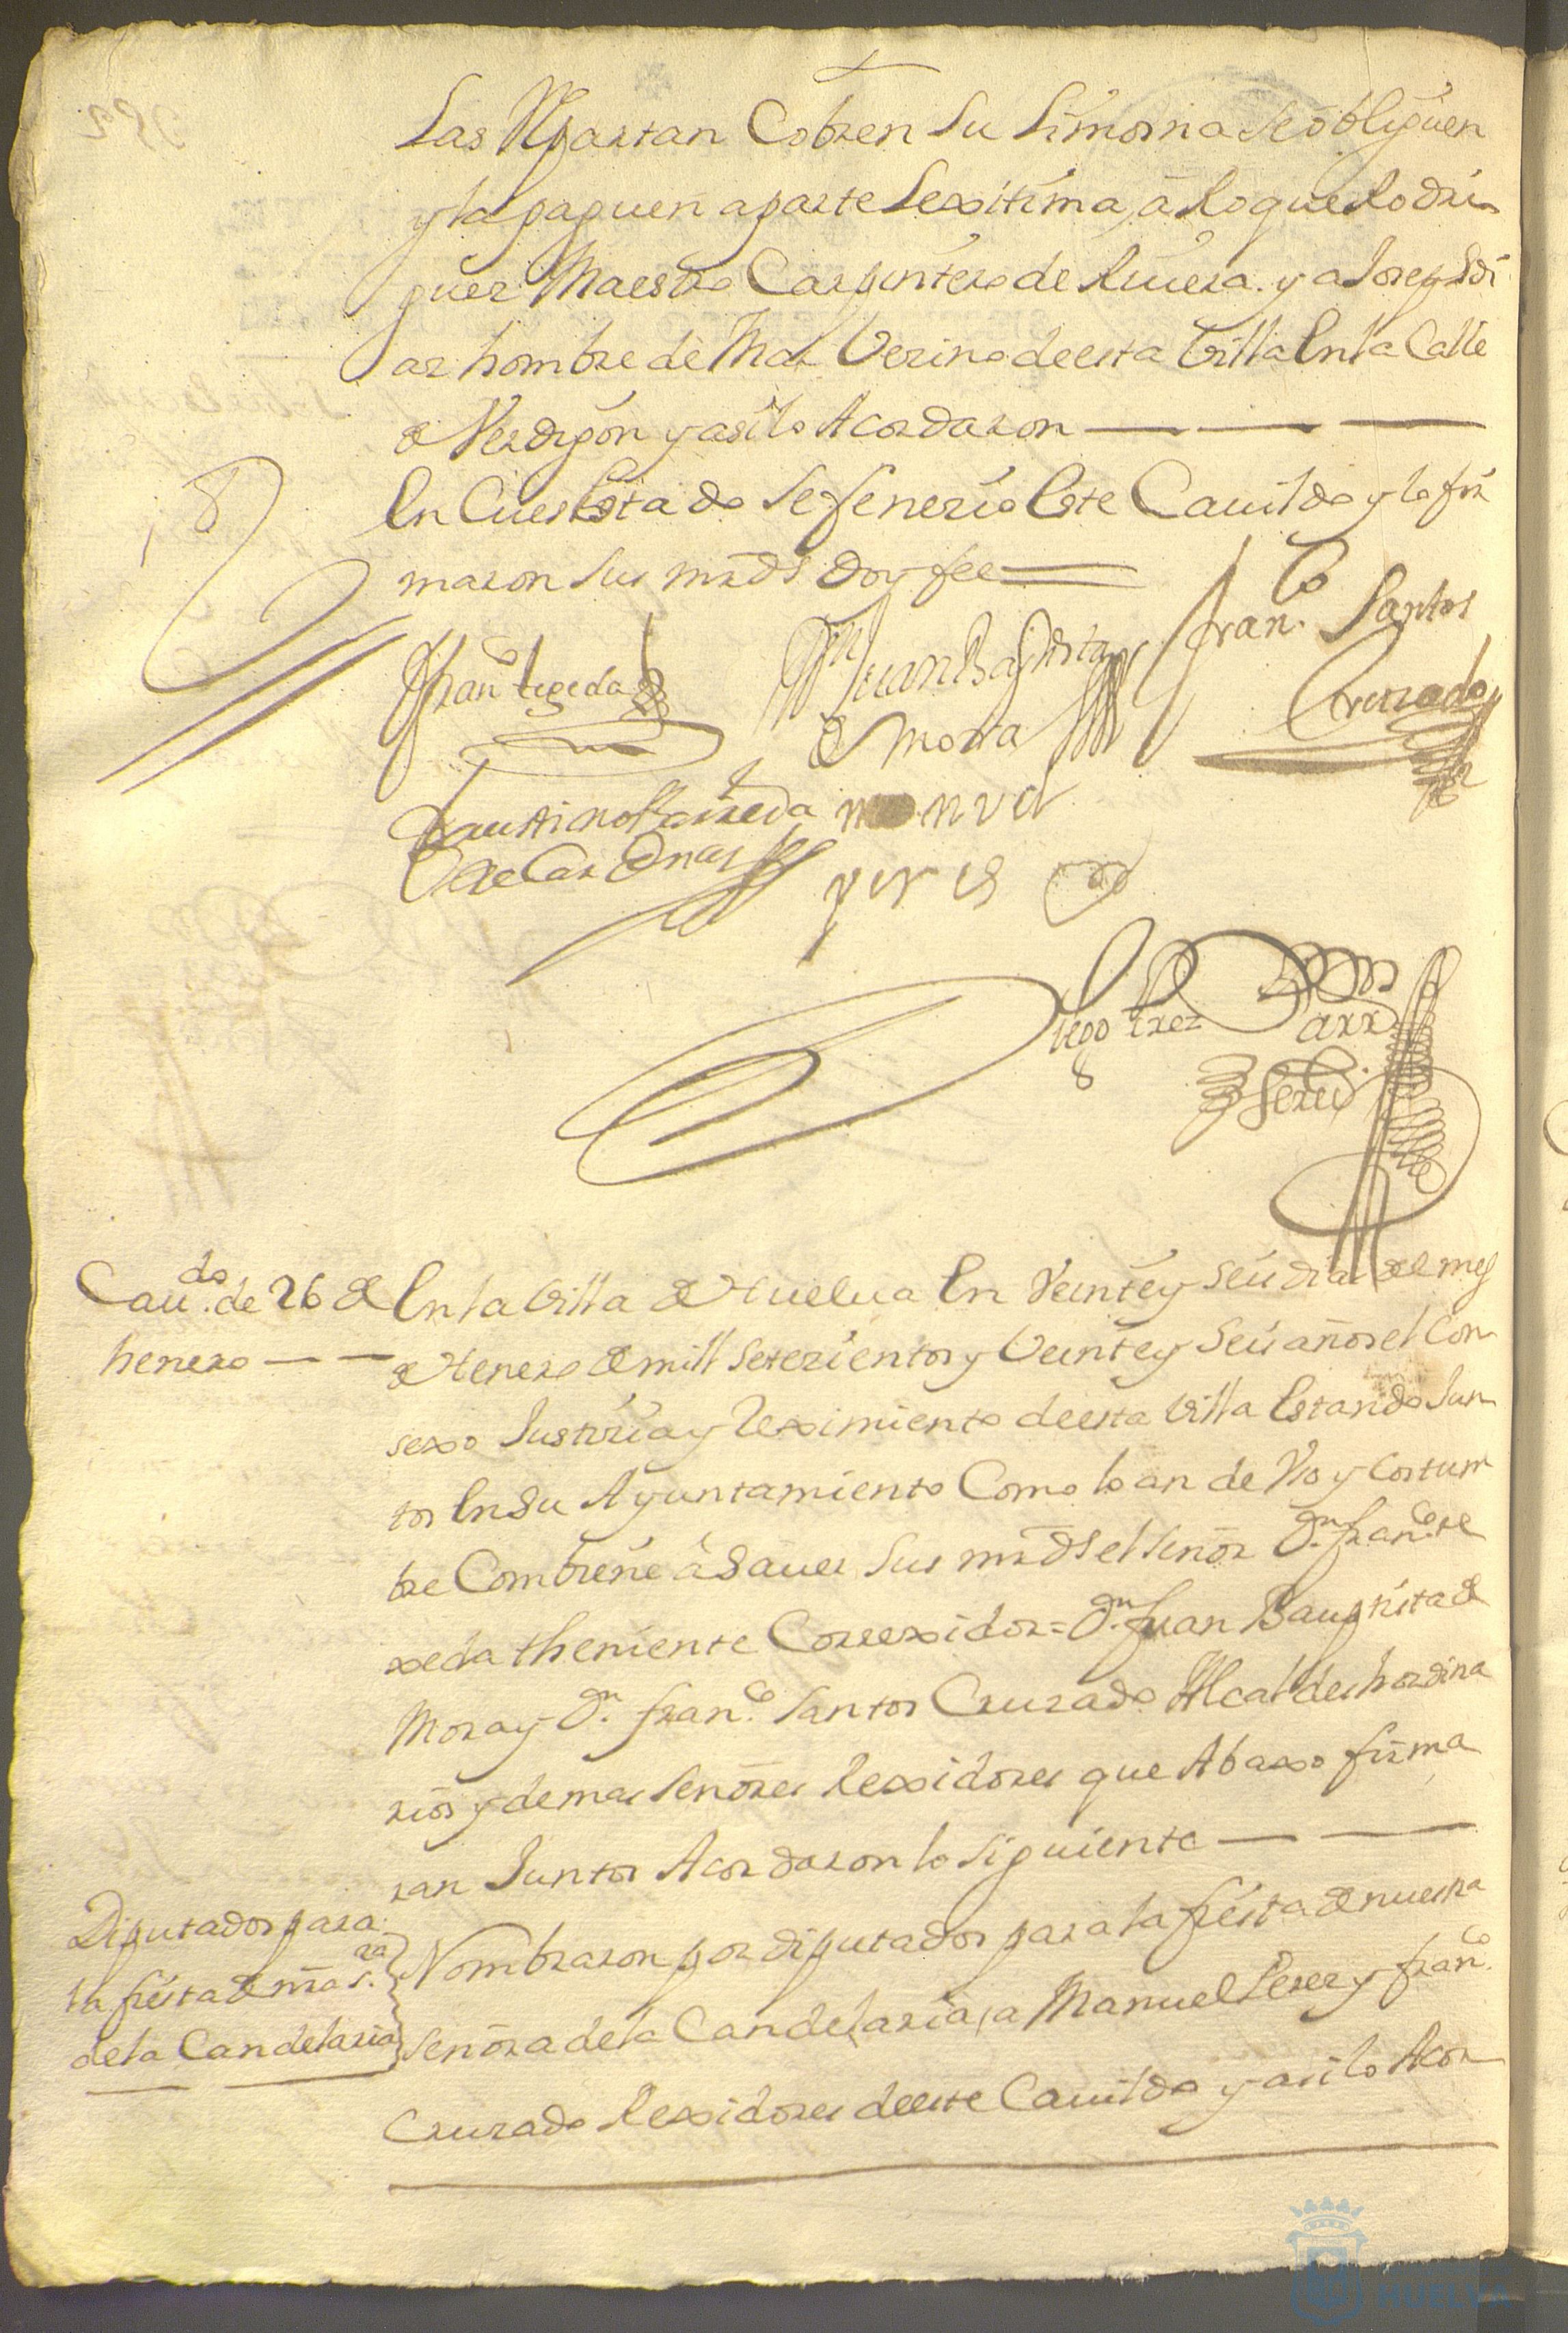 las Repartan Cobren su limosna se obliguen
y la paguen aparte lexitima, a Roque Rodri-
guez Maestro Carpintero de Riuera. y a Joseph Di
az hombre de Mar Vezino de esta Villa En la Calle
de Verdigon y asi lo Acordaron
En Cuio Estado se fenezio Este Cauildo y lo fir
maron sus mrds doy fee
Franco tegeda
Dn Juan Baptista
de Mora
Franco Santos
Cruzado
Faustino Castañeda
de Cardenas
manuel
peres
Diego
Caudo. de 26 de
henero
En la Villa de Huelua En Veinte y seis dias del mes
de Henero de mill setezientos y Veinte y seis años el Con
sexo Justizia y Reximiento de esta Villa Estando Jun
tos En su Ayuntamiento Como lo an de Vso y Costum
bre Combiene a Sauer Sus mrds el señor Dn. Franco. te
xeda theniente Correxidor = Dn. Juan Bauptista de
Mora y Dn. Franco. Santos Cruzado Alcaldes hordina
rios y demas señores Rexidores que Abaxo firma
ran Juntos Acordaron lo siguiente
Diputados para
la fiesta de nra sra.
de la Candelaria
Nombraron por diputados para la fiesta de nuestra
señora de la Candelaria, a Manuel Perez y franco.
Cruzado Rexidores de este Cauildo y asi lo Acor
HUELVA